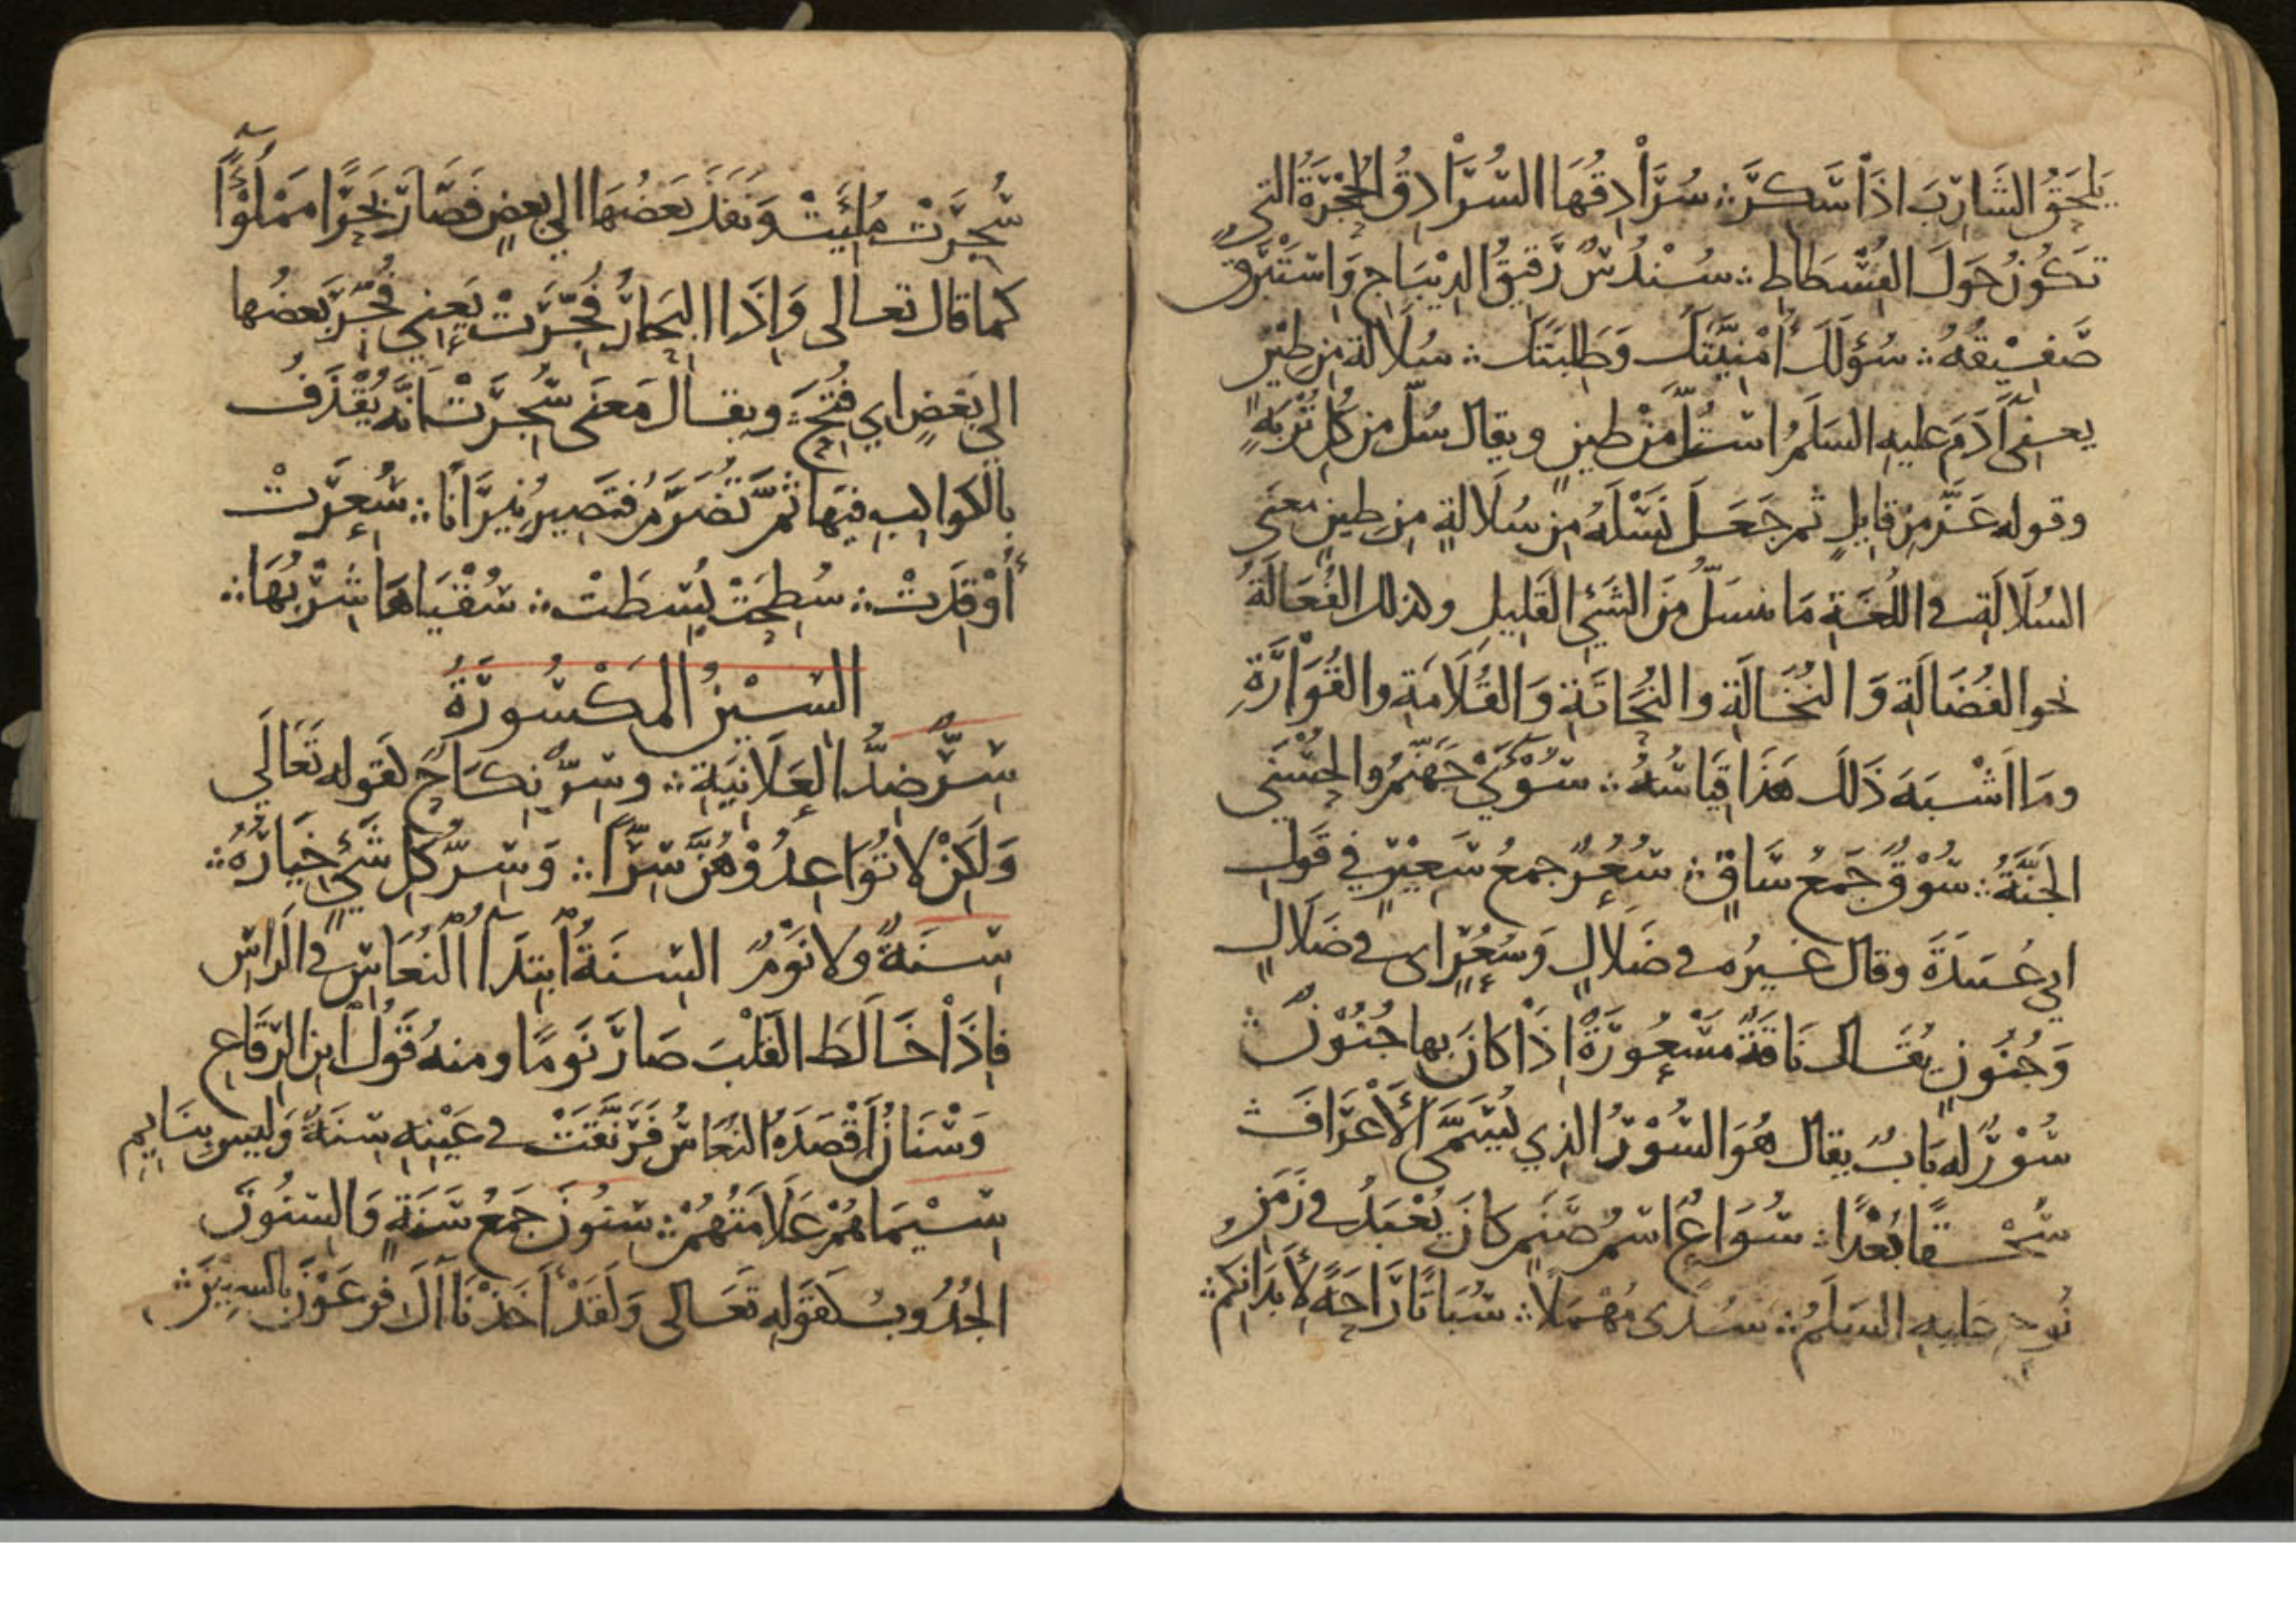 يَلْحَقُ الشَّارِبَ اذَا سَكِرَ ∴ سُرَادِقُهَا السُّرَادِقُ الحُجْرَةُ التي
تَكُونُ حَوْلَ الفُسْطَاطِ ∴ سُنْدُسٌ رَقِيقُ الدِيْبَاجِ وَاسْتَبْرَقٌ
صَفِيْقُهُ ∴ سُؤْلَكَ أُمْنِيَّتَكَ وَطَلِبَتَكَ ∴ سُلَالةٍ مِن طِيْنٍ
يعني آدَمَ عليهِ السَلَمُ اسْتُلَّ مِنْ طينٍ ويقال سُلَّ مِن كُلِّ تُرْبَةٍ
وقوله عَزَّ مِن قايِلٍ ثم جَعَلَ نَسْلَهُ مِن سُلَالةٍ مِن طينٍ معنى
السُلَالَةِ في اللُغَةِ مَا ينسَلُّ مِنَ الشَئِ القَلِيلِ وكذلك الفُعَالَةُ
نحو الفُضَالَةِ وَالنُخَالَةِ والنُحَاتَةِ وَالقُلَامَةِ والقُوَارَةِ
ومَا اَشْبَهَ ذَلكَ هَذَا قِيَاسُهُ ∴ سُوْأَىْ جَهَنَّمُ والحُسْنَى
الجَنَّةُ ∴ سُوْقٌ جَمْعُ سَاقٍ ∴ سُعُرٌ جمعُ سَعِيْرٍ في قَولِ
ابي عُبَيدَةَ وقال غيرُه في ضَلَالٍ وَسُعُرٍ اي في ضَلَالٍ
وَجُنُونٍ يُقَال نَاقَةٌ مَسْعُورَةٌ اِذَا كَانَ بها جُنُوْنٌ ∴
سُوْرٌ له بَابٌ يقال هُوَ السُّوْرُ الذِي يُسَمَّى الأَعْرَافَ ∴
سُحْقًا بُعْدًا ∴ سُوَاعٌ اسْمُ صَنَمٍ كَانَ يُعْبَدُ في زَمَنِ
نُوحٍ عليهِ السَلَمُ ∴ سُدًى مُهْمَلًا ∴ سُبَاتًا رَاحَةً لأَبْدَانِكُم ∴
سُجِّرَتْ مُلِئَتْ وَنفَذَ بَعضُهَا الي بعضٍ فَصَارَ بَحرًا مَمْلُوْءًا
كما قال تعالى وَاِذَا البِحَارُ فُجِّرَتْ يَعني فُجِّرَ بَعضُها
الي بَعْضٍ اي فُتِحَ ∴ ويقال مَعنَى سُجِّرَتْ انَّهُ يُقْذَفُ
بالكَواكِبِ فيهَا ثمَّ تُضْرَمُ فتَصِيرُ نِيرَانًا ∴ سُعِّرَتْ
أُوْقِدَتْ ∴ سُطِحَتْ بُسِطَتْ ∴ سُقْيَاهَا شِرْبُهَا ∴
السّيْنُ المَكْسُورَةُ
سِرٌّ ضِدُّ العَلَانِيَةِ ∴ وسِرٌّ نِكَاحٌ لقوله تَعَالَي
وَلَكِنْ لا تُوَاعِدُوْهُنَّ سِرًّا ∴ وَسِرُّ كُلِ شَئٍ خِيَارُهُ ∴
سِنَةٌ ولا نَوْمٌ السِنَةُ ابتِدَآءُ النُعَاسِ في الرَاسِ
فاِذَا خَالَطَ القَلْبَ صَارَ نَومًا ومنهُ قَوْلُ ابنِ الرِقَاعِ
وَسْنَانُ أَقْصَدَهُ النُعَاسُ فَرَنَّقَتْ في عَيْنِهِ سِنَةٌ وَليسَ بِنَايِمِ
سِيْمَاهُمْ عَلَامَتُهُمْ ∴ سِنُونَ جَمْعُ سَنَةٍ وَالسِنُونَ
الجُدُوبُ كقَولِهِ تَعَالى وَلَقَدْ أَخَذْنَا آلَ فِرعَوْنَ بالسِنِيْنَ ∴